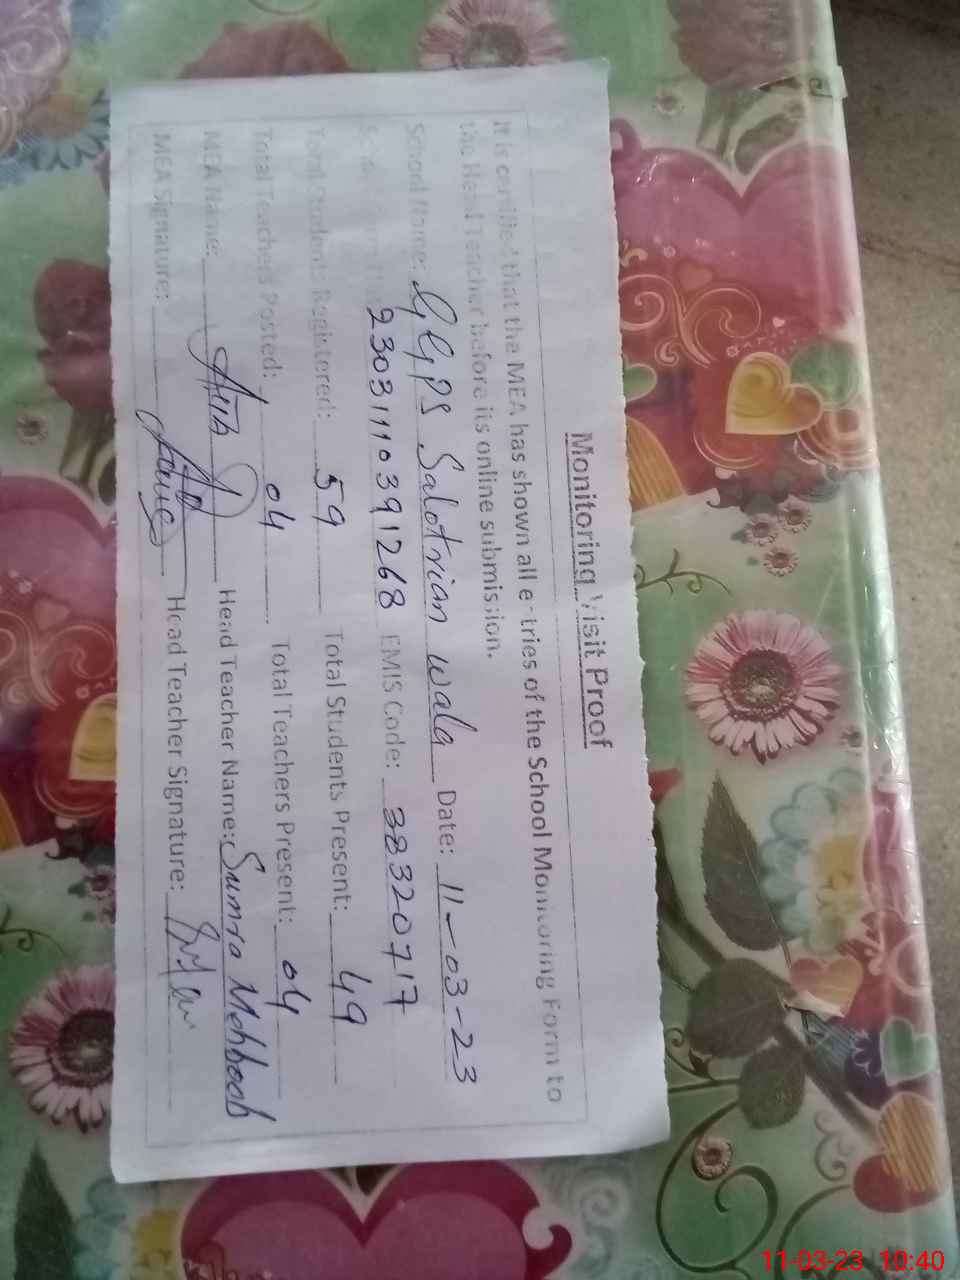 Monitoring Visit Proof
It is certified that the MEA has shown all entries of the School Monitoring Form to
the Head Teacher before its online submission.
School Name: GGPS Salotrian wala Date: 11-03-23
23031110391268 EMIS Code: 38320717
Total Students Registered: 59 Total Students Present: 49
Total Teachers Posted: 04 Total Teachers Present: 04
MEA Name: Head Teacher Name: Sumra Mehboob
MEA Signature: Head Teacher Signature:
11-03-23 10:40